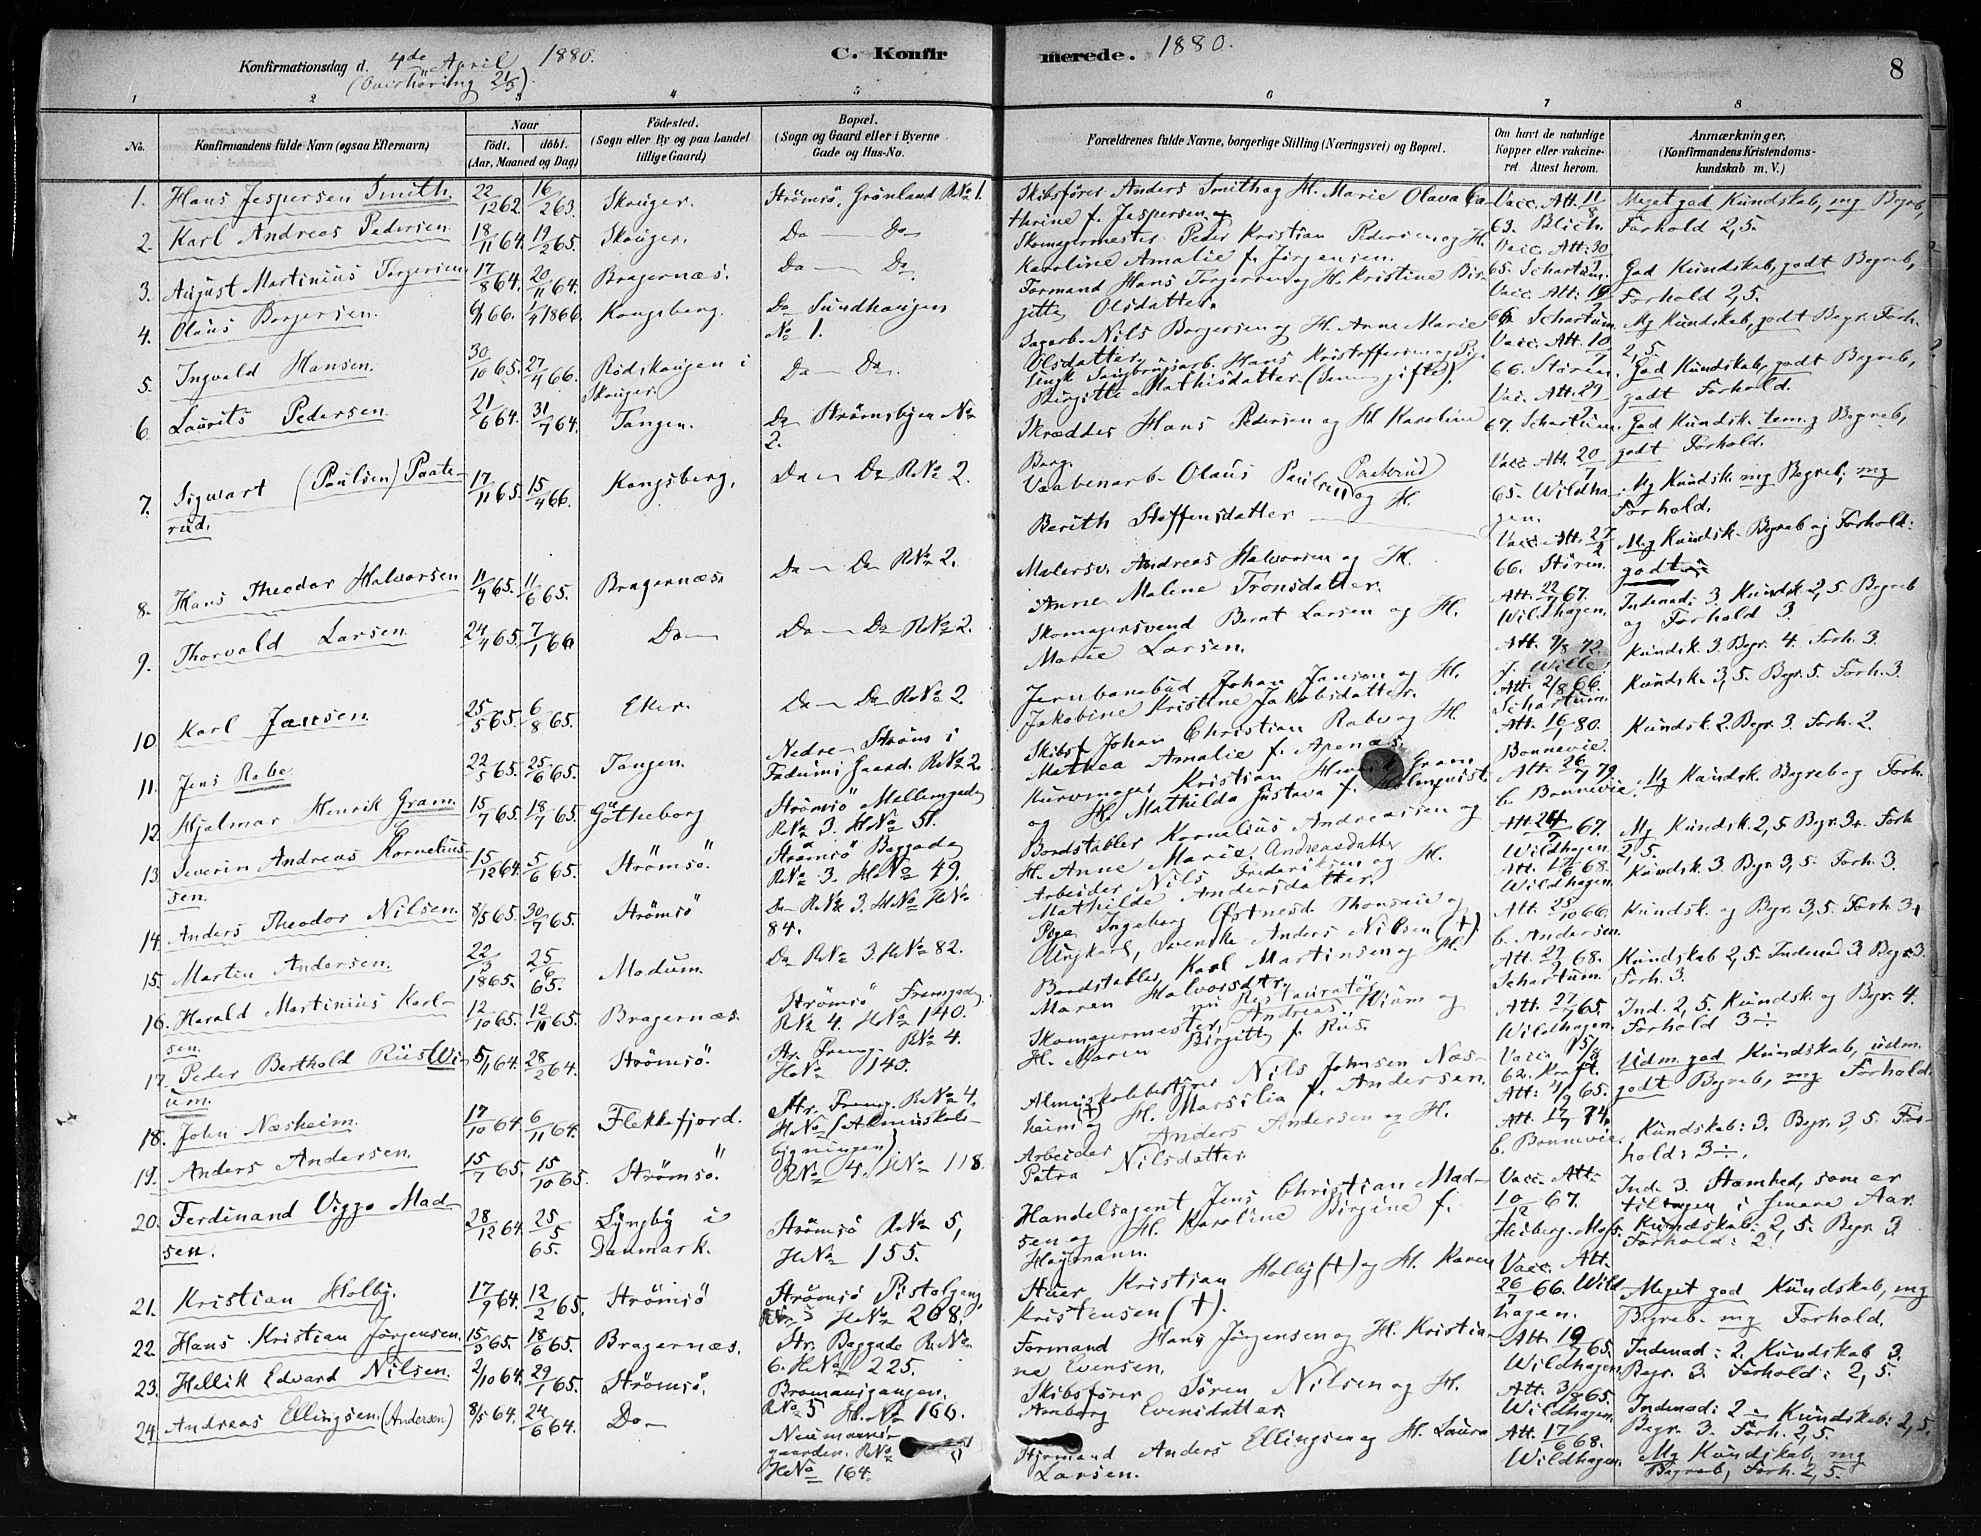 Konfirmationsdag d. 4de April 1880.
(Overhöring 21/3).
C. Konfir
merede. 1880.
8
1 2 3 4 5
6 7 8
No. Konfirmandens fulde Navn (ogsaa Efternavn)
Naar
födt. döbt.
(Aar, Maaned og Dag)
Födested.
(Sogn eller By og paa Landet
tillige Gaard)
Bopæl.
(Sogn og Gaard eller i Byerne
Gade og Hus-No.
Forældrenes fulde Navne, borgerlige Stilling (Næringsvei) og Bopæl.
Om havt de naturlige
Kopper eller vakcine-
ret. Attest herom.
Anmærkninger,
(Konfirmandens Kristendoms-
kundskab m. V.)
1. Hans Jespersen Smith. 22/12 62. 16/2 63. Skouger. Strömsö, Grönland RNo 1.
Skibsfører Anders Smith og H. Marie Olava Ca-
therine f. Jespersen.
Vacc. Att. 11/8
63. Blich.
Meget god Kundskab, mg Begreb,
Forhold 2,5.
2. Karl Andreas Pedersen 18/11 64. 19/2 65. Skouger. Do Do
Skomagermester Peder Kristian Pedersen og H.
Karoline Amalie f. Jörgensen.
Vacc. Att. 30
65. Schartum.
God Kundskab, godt Begreb,
Forhold 2,5.
3. August Martinius Torgersen 17/8 64. 20/11 64. Bragernæs. Do Do
Formand Hans Torgersen og H. Kristine Bir-
gitte Olsdatter.
Vacc. Att.
66. Schartum.
Mg Kundskab, godt Begr. Forh.
2,5.
4. Olaus Borgersen. 6/1 66. 1/4 1866. Kongsberg. Do Sundhaugen
No 1.
Sagarb. Nils Borgersen og H. Anne Marie
Olsdatter.
Vacc. Att. 10/7
66. Stören.
God Kundskab, godt Begreb,
godt Forhold.
5. Ingvald Hansen. 30/10 65. 27/4 66. Rödskougen i
Skouger. Do Do.
Ungk. Saugbrugsarb. Hans Kristoffersen og Pige
Birgitte Mathisdatter (Senere gifte).
Vac. Att. 29
67. Schartum.
God Kundsk. tem. g Begreb,
godt Forhold.
6. Laurits Pedersen. 21/6 64. 31/7 64. Tangen. Do Strömsbyen No
2.
Skrædder Hans Pedersen og H. Karoline
Borg.
Vacc. Att. 20/7
65. Wildha-
gen.
Mg Kundsk. mg Begreb, mg
Forhold.
7. Sigwart (Paulsen) Paate-
rud. 17/11 65. 15/4 66. Kongsberg. Do Do RNo 2.
Vaabenarb. Olaus Paulsen Paaterud og H.
Berith Steffensdatter
Vacc. Att. 27/2
66. Stören.
Mg Kundsk. Begreb og Forhold:
godt
8. Hans Theodor Halvorsen 11/4 65. 11/6 65. Bragernæs. Do Do RNo 2.
Malersv. Andreas Halvorsen og H.
Anne Malene Tronsdatter.
Att. 22/7 67.
Wildhagen.
Indenad: 3 Kundsk. 2,5 Begreb
og Forhold 3.
9. Thorvald Larsen. 24/4 65. 7/1 66 Do Do Do RNo 2.
Skomagersvend Bernt Larsen og H.
Marie Larsen.
Att. 7/8 72.
J. Wille.
Kundsk. 3. Begr. 4. Forh. 3.
10. Karl Jansen. 25/5 65. 6/8 65. Eker. Do Do RNo 2
Jernbanebud Johan Jansen og H.
Jakobine Kristine Jakobsdatter.
Att. 2/8 66.
Schartum.
Kundsk. 3,5. Begr. 5. Forh. 3.
11. Jens Rabe. 22/5 65. 25/6 65. Tangen. Nedre Ströms i
Gaard. RNo 2
Skibsf. Johan Christian Rabe og H.
Mathea Amalie f. Apenæs.
Att. 16/1 80.
Bonnevie.
Kundsk. 2. Begr. 3 Forh. 2.
12. Hjalmar Henrik Gram. 15/7 65. 18/7 65. Götheborg Strömsö Mellemgade
RNo 3. HNo 51.
Kurvmager Kristian Henrik Gram
og H. Mathilda Gustava f. Holmquist.
Att. 26/7 79
C. Bonnevie.
Mg Kundsk. Begreb og Forh.
13. Severin Andreas Kornelius-
sen. 15/12 64. 5/6 65. Strömsö. Strömsö Baggade
RNo 3. HNo 49.
Bordstabler Kornelius Andreassen og
H. Anne Marie Andreasdatter
Att. 67.
Wildhagen.
Mg Kundsk. 2,5 Begr. 3+ Forh
2,5.
14. Anders Theodor Nilsen. 8/5 65. 30/7 65. Strömsö Do RNo 3. HNo
84.
Arbeider Nils Frederiksen og H.
Mathilde Andersdatter.
Att. 68.
Wildhagen.
Kundsk. 3. Begr. 3,5. Forh. 3.
15. Martin Andersen. 22/3 1865. 25/6 65. Modum. Do RNo 3. HNo 82.
Pige Ingeborg Østnesd. og
Ungkarl, Svenske Anders Nilsen (†).
Att. 25/10 66.
C. Andersen.
Kundsk. og Begr. 3,5. Forh. 3+
16. Harald Martinius Karl-
sen. 12/10 65. 12/11 65. Bragernæs. Strömsö Fremgade
RNo 4. HNo 140.
Bordstabler Karl Martinsen og H.
Maren Halvorsdtr.
Att. 68.
Schartum.
Kundskab 2,5. Indenad. 3. Begr. 3.
Forh. 3.
17. Peder Berthold Riis Wi-
um. 5/1 64. 28/2 64. Strömsö. Str. Fremg. RNo 4.
HNo 140.
Skomagermester, nu Restauratör Andreas Wium og
H. Maren Birgitte f. Riis.
Att. 27/7 65.
Wildhagen.
Ind. 2,5. Kundsk. og Begr. 4.
Forhold 3÷.
18. John Næsheim. 17/10 64. 6/11 64. Flekkefjord. Str. Fremg. RNo 4.
HNo (Almuskole-
bygningen)
Almuskolebestyrer Nils Johnsen Næs-
heim (†) og H. Marsilia f. Andersen.
Vacc. 15/8
62. Kraft.
Att. 4/9 65.
Udm. god Kundskab, udm.
godt Begreb, mg Forhold.
19. Anders Andersen. 15/7 65. 15/10 65. Strömsö. RNo 4. HNo 118.
Arbeider Anders Andersen og H.
Petra Nilsdatter.
Att. 17/7 74.
C. Bonnevie.
Kundskab: 3. Begr. 3,5. For-
hold: 3÷.
20. Ferdinand Viggo Mad-
sen. 28/12 64. 25/5 65. Lyngby i
Danmark. Strömsö RNo 5,
HNo 155.
Handelsagent Jens Christian Mad-
sen og H. Karoline Birgine f.
Hagmann.
Vacc. Att.
10/12 67.
Heiberg. Moss.
Ind. 3. Stamhed, som er
tiltagen i senere Aar.
Kundskab: 2,5. Begr. 3
Forhold: 2.
21. Kristian Holby. 17/9 64. 12/2 65. Strömsö Strömsö Pistolgang,
5 HNo 208.
Kristian Holby (†) og H. Karen
Kristensen (†).
Vacc. Att.
26/7 66. Wild
hagen.
Meget god Kundskab, mg
Begreb. mg Forhold.
22. Hans Kristian Jörgensen. 15/3 65. 18/6 65. Bragernæs. Str. Baggade RNo
6. HNo 225.
Formand Hans Jörgensen og H. Kristia-
ne Evensen.
Att. 65.
Wildhagen.
Indenad: 2. Kundskab 3.
Begr. 3. Forhold: 2,5.
23. Hellik Edvard Nilsen. 2/10 64. 29/1 65. Strömsö. Bromansgangen.
RNo 5 H.No 160.
Skibsfører Sören Nilsen og H.
Evensdatter.
Att. 3/8 65.
Wildhagen.
Indenad: 2÷ Kundskab: 2,5.
Begr. 3. Forh. 2,5.
24. Andreas Ellingsen. (Andersen) 8/5 64. 24/6 64. Do Neumanns-
gaarden. RNo
HNo 164.
Styrmand Anders Ellingsen og H. Laura
Larsen.
Att. 17/6 68.
Wildhagen.
Mg Kundskab, mg
Begreb, Forh. 2,5.